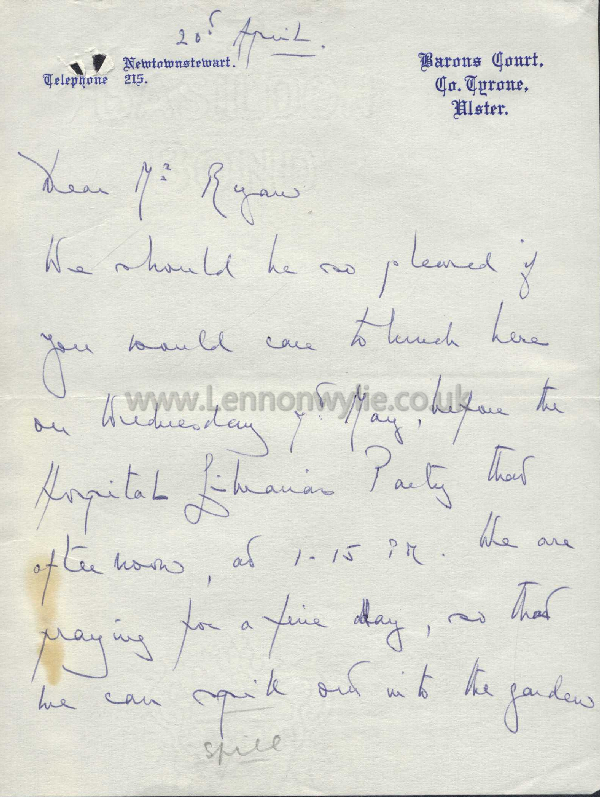 20t April.
Newtownstewart.
Telephone 215.
Barons Court,
Co. Tyrone,
Ulster.
Dear Mr Ryan
We should be so pleased if
you would care to lunch here
on Wednesday 7th May, before the
www.Lennonwylie.co.uk
Hospital Librarians Party that
afternoon, at 1-15 PM. We are
praying for a fine day, so that
we can spill out into the garden
spill